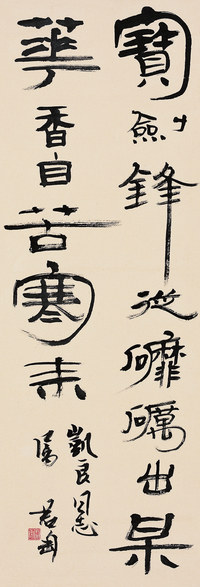 寶劍鋒從䃺礪出某
華香自苦寒来
凱良同志
屬 君匋